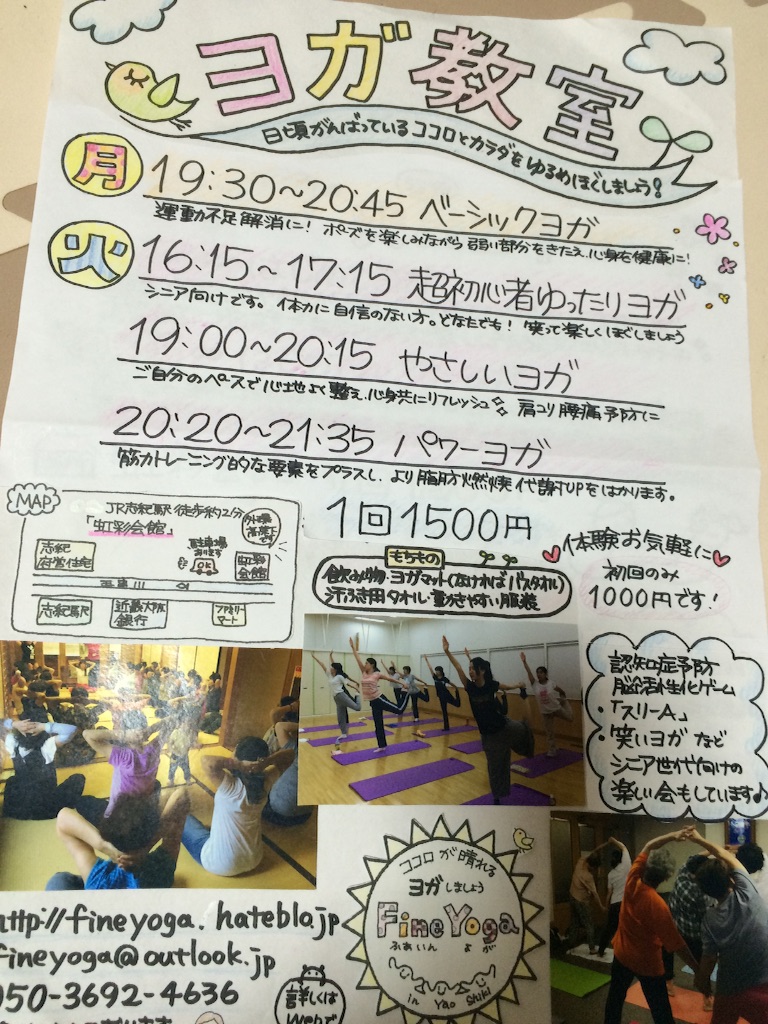 ヨガ教室
日頃がんばっているココロとカラダをゆるめほぐしましょう!
月
19:30~20:45 ベーシックヨガ
運動不足解消に! ポーズを楽しみながら 弱い部分をきたえ、心身を健康に!
火
16:15~17:15 超初心者ゆったりヨガ
シニア向けです。体力に自信のない方。どなたでも! 笑って楽しくほぐしましょう
19:00~20:15 やさしいヨガ
ご自分のペースで心地よく整え、心身共にリフレッシュ 肩コリ腰痛予防に
20:20~21:35 パワーヨガ
筋力トレーニング的な要素をプラスし、より脂肪燃焼代謝UPをはかります。
MAP
JR志紀駅 徒歩約2分
「虹彩会館」
外環
高架下
です
志紀
府営住宅
駐車場
あります
OK
虹彩
会館
志紀駅
近畿大阪
銀行
ファミリー
マート
1回1500円
もちもの
飲み物・ヨガマット(なければバスタオル)
汗ふき用タオル・動きやすい服装
体験お気軽に
初回のみ
1000円です!
認知症予防
脳活性化ゲーム
・「スリーA」
・笑いヨガ など
シニア世代向けの
楽しい会もしています♪
ココロが晴れる
ヨガしましょう
Fine Yoga
ふぁいん よが
in Yao Shiki
http://fineyoga.hateblo.jp
fineyoga@outlook.jp
050-3692-4636
詳しくは
Webで